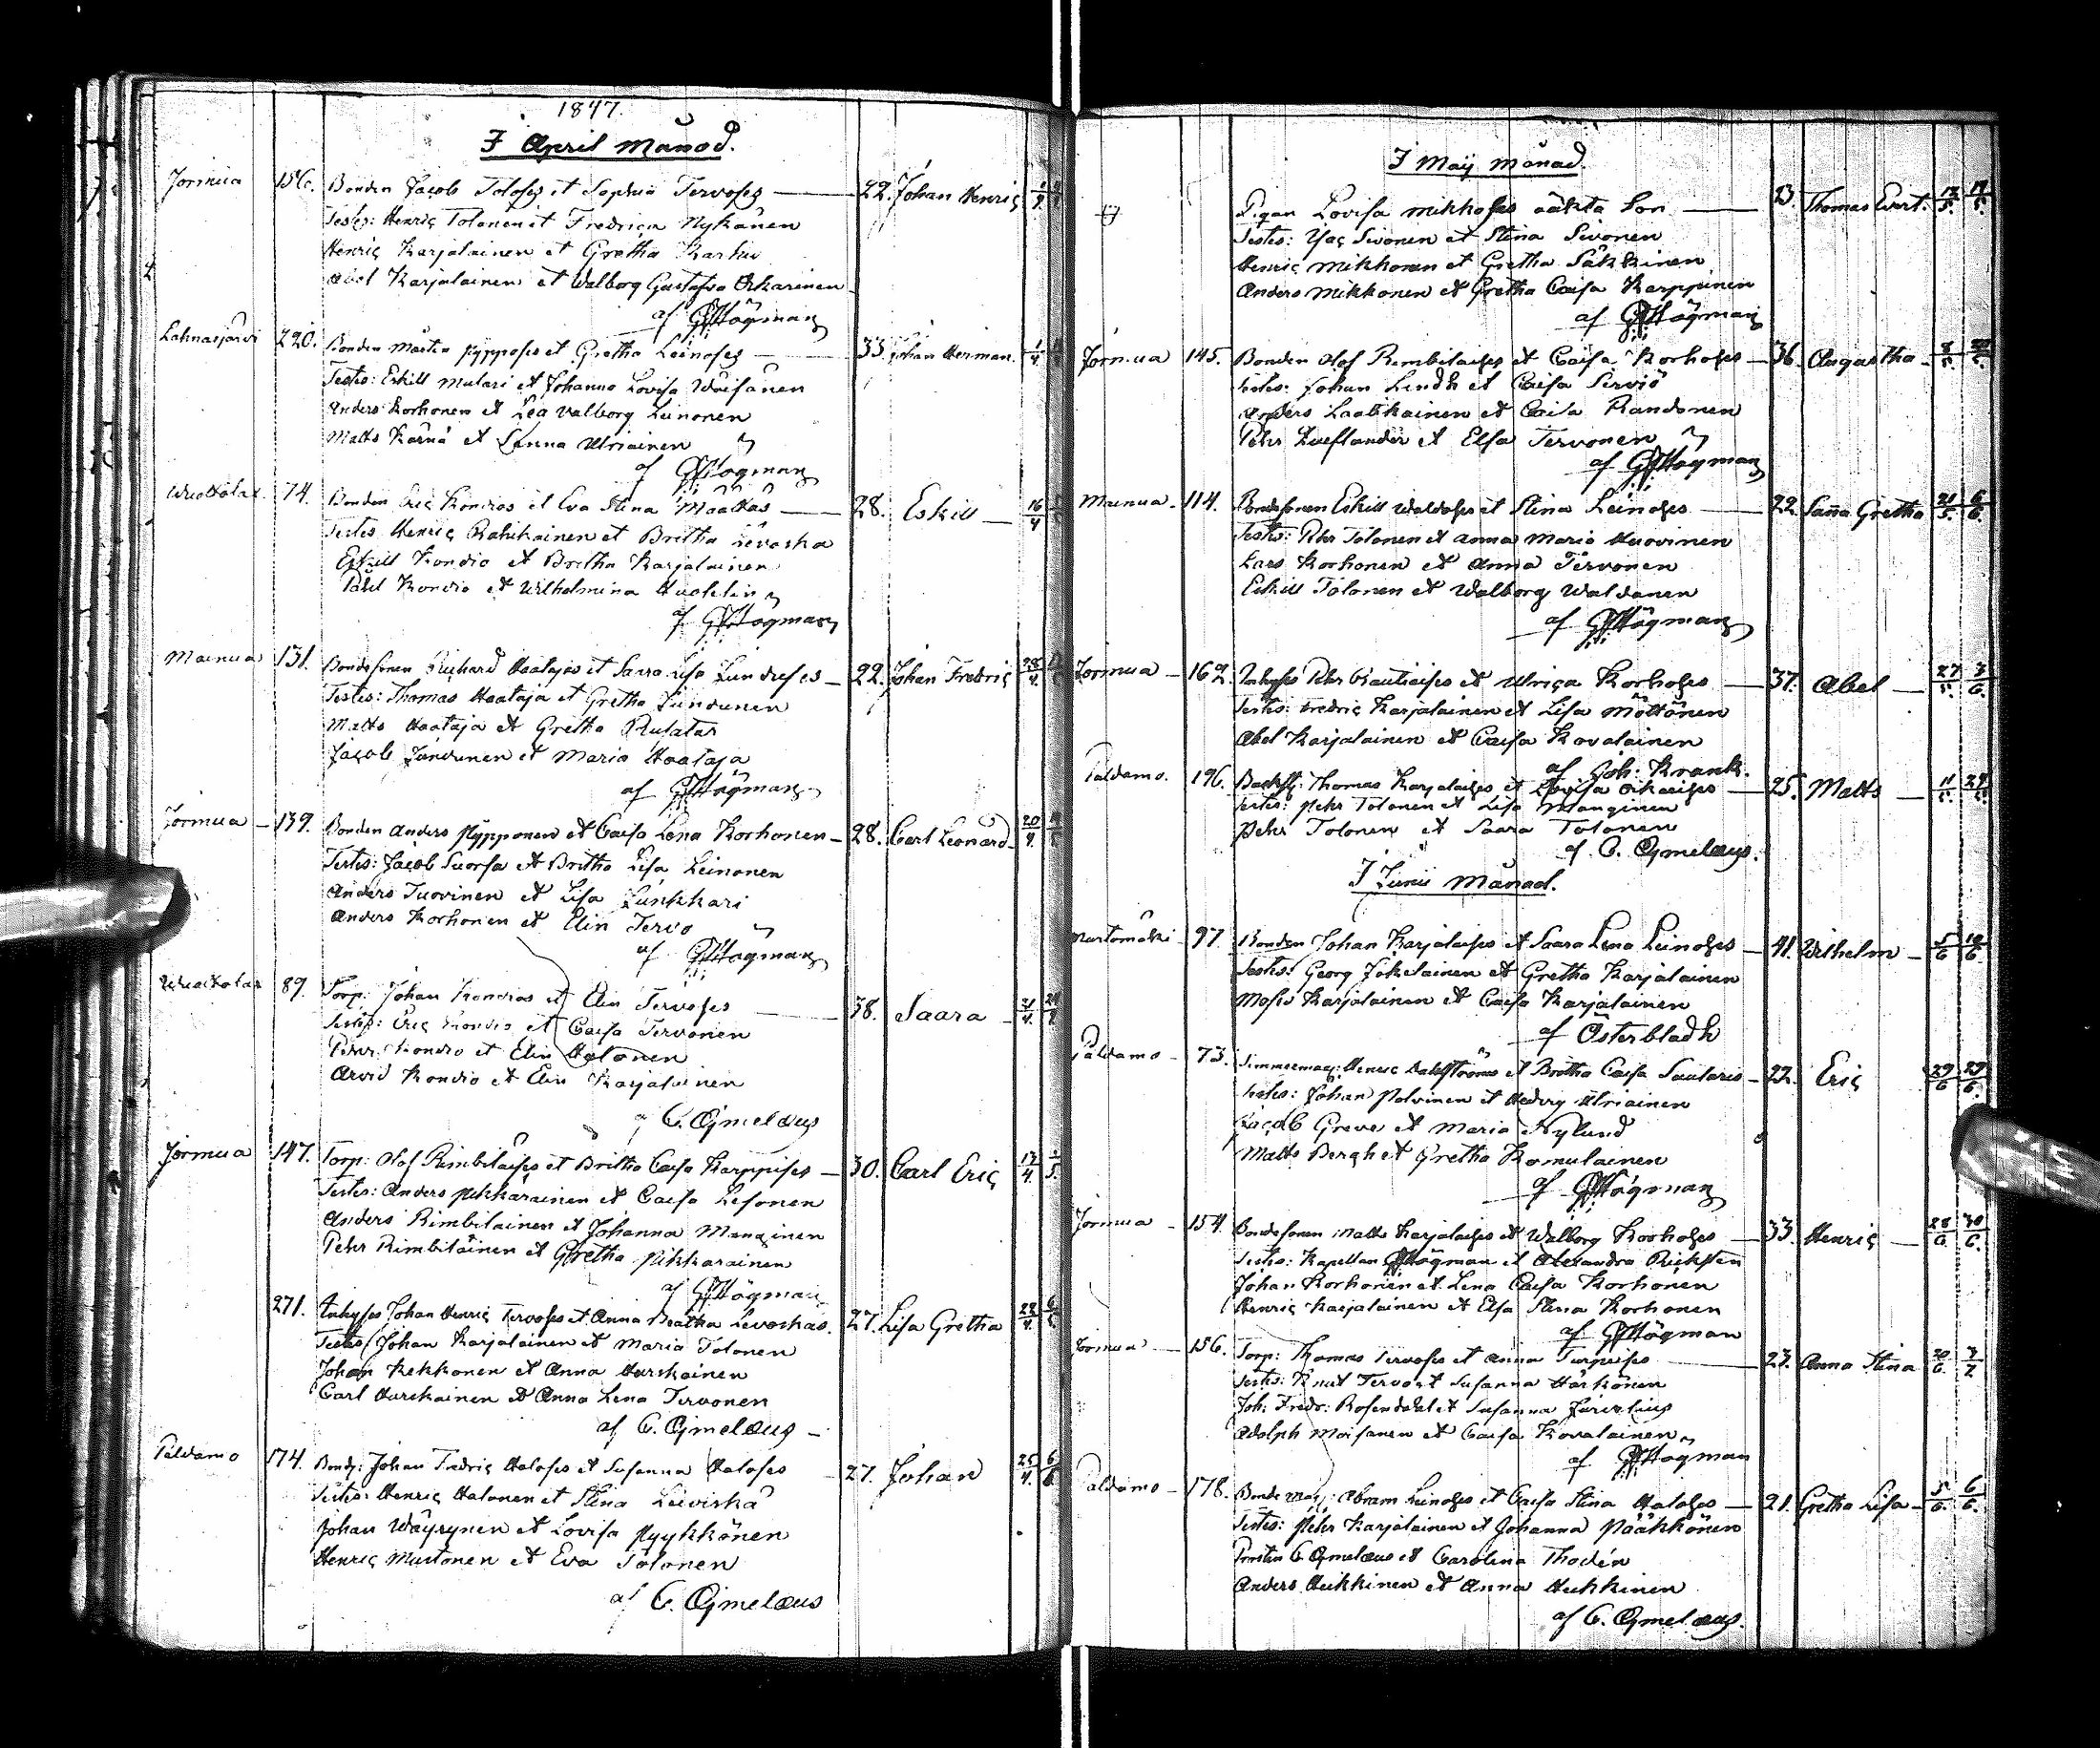 1847.
I April Månad.
Jormua 156. Bonden Jacob Toloses et Sophia Tervoses — 22. Johan Henric
Testes: Henric Tolonen et Fredrica Nykänen
Henric Karjalainen et Gretha Karhu
Abel Karjalainen et Walborg Gustafva
af Högman
Lahnasjärvi 220. Bonden Mårten Pypposes et Gretha Leinoses — 33. Johan Herman.
Testes: Eskill Mulari et Johanna Lovisa Wäisänen
Anders Korhonen et Lea Valborg Leinonen
Matts Kärnä et Sanna Uriainen
af Högman
74. Bonden Eric Kondios et Eva Stina Määttäs — 28. Eskill — 16/4
Testes Henric Rahikainen et Britha Levoska
Eskill Kondio et Britha Karjalainen
Påhl Kondio et Wilhelmina
af Högman
Mainua 131. Bondesonen Richard Haatajas et Saara Lisa — 22. Johan Fredric 28/4
Testes: Thomas Haataja et Gretha Jundunen
Matts Haataja et Gretha
Jacob Jundunen et Maria Haataja
af Högman
Jormua — 139. Bonden Anders Pypponen et Caisa Lena Korhonen — 28. Carl Leonard 20/4
Testes: Jacob Suorsa et Britha Lisa Leinonen
Anders Tuovinen et Lisa Junkkari
Anders Korhonen et Elin Tervo
af Högman
89. Torp: Johan Kondios et Elin Tervoses — 38. Saara 21/4
Testes: Eric Kondio et Caisa Tervonen
Pehr Kondio et Elin Halonen
Arvid Kondio et Elin Karjalainen
C. Cygnelæus
Jormua 147. Torp: Olof Rimbiläises et Britha Caisa Karppises — 30. Carl Eric 13/4
Testes: Anders Pikkarainen et Caisa Lesonen
Anders Rimbiläinen et Johanna Manginen
Pehr Rimbiläinen et Gretha Pikkarainen
af Högman
271. Inhyses Johan Henric Tervoses et Anna Beatha Levoskas. 27. Lisa Gretha
Testes: Johan Karjalainen et Maria Tolonen
Johan Kekkonen et Anna Hurskainen
Carl Hurskainen et Anna Lena Tervonen
af C. Cygnelæus —
Paldamo 174. Bond: Johan Fredric Haloses et Susanna Haloses 27. Johan 25/4
Testes: Henric Halonen et Stina Leiviskä
Johan Wäyrynen et Lovisa Pyykkönen
Henric Mustonen et Eva Tolonen
af C. Cygnelæus
I Maij Månad.
Pigan Lovisa Mikkoses oäkta Son — 23. Thomas Evert.
Testes: Isac Sivonen et Stina Sivonen
Henric Mikkonen et Gretha Säkkinen
Anders Mikkonen et Gretha Caisa Karppinen
af Högman
Jormua 145. Bonden Olof Rimbiläises et Caisa Korhoses — 36. Augustha
Testes: Johan Lindh et Caisa Serviö
Anders Laatikainen et Caisa Kandonen
Pehr et Elsa Tervonen
af Högman
Mainua — 114. Bondesonen Eskill Waldoses et Stina Leinoses — 22. Sanna Gretha 21/5. 6/6.
Testes: Pehr Tolonen et Anna Maria Huovinen
Lars Korhonen et Anna Tervonen
Eskill Tolonen et Walborg Waldonen
af Högman
Jormua — 162. Inhyses Pehr et Ulrica Korhoses — 37. Abel — 27/5. 3/6.
Testes: Fredric Karjalainen et Lisa Möttönen
Abel Karjalainen et Caisa Kovalainen
af Joh: Krank.
Paldamo. 196. Thomas Karjalaises et Lovisa — 25. Matts —
Testes: Pehr Tolonen et Lisa Manginen
Pehr Tolonen et Saara Tolonen
af C. Cygnelæus.
I Junii Månad.
97. Bonden Johan Karjalaises et Saara Lena Leinoses — 41. Wilhelm —
Testes: Georg Jokelainen et Gretha Karjalainen
Moses Karjalainen et Caisa Karjalainen
af Österbladh
Paldamo — 73. Timmerman: Henric et Britha Caisa — 22. Eric 29/6 29/6.
Testes: Johan Polvinen et Hedvig Uriainen
Jacob Greve et Maria Nylund
Matts Bergh et Gretha Komulainen
af Högman
Jormua — 154. Bondesonen Matts Karjalaises et Walborg Korhoses — 33. Henric — 28/6. 30/6.
Testes: Kapellan Högman et Alexandra
Johan Korhonen et Lena Caisa Korhonen
Henric Karjalainen et Elsa Stina Korhonen
af Högman
Jormua — 156. Torp: Thomas Tervoses et Anna Turpeises — 23. Anna Stina
Testes: Knut Tervo et Susanna Härkönen
Joh: Fredr: Rosendahl et Susanna
Adolph Moisanen et Caisa Kovalainen
af Högman
Paldamo — 178. Abram Leinoses et Caisa Stina Haloses — 21. Gretha Lisa — 5/6. 6/6.
Testes: Pehr Karjalainen et Johanna Pääkkönen
Prosten C. Cygnelæus et Carolina Thodén
Anders Heikkinen et Anna Heikkinen
af C. Cygnelæus.